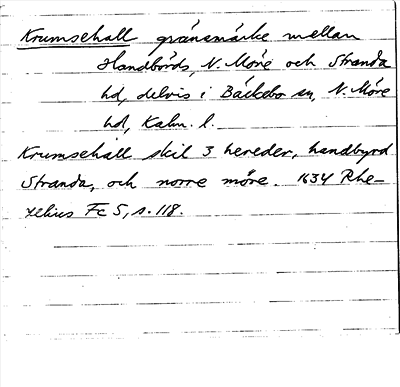 Krumsehall gränsmärke mellan
Handbörds, N. Möre och Stranda
hd, delvis i Bäckebo sn, N. Möre
hd, Kalm. l.
Krumsehall skil 3 hereder, handbyrd
Stranda, och norre möre. 1634 Rhe-
zelius Fc 5, s. 118.